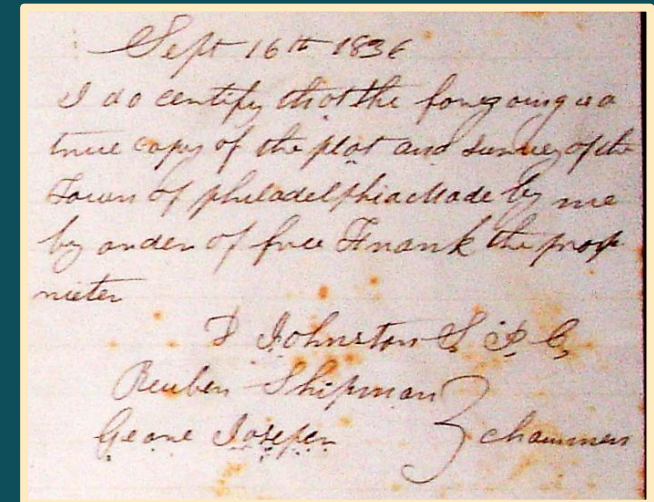 Sept 16th 1836
I do certify that the foregoing is a
true copy of the plat and survey of the
Town of philadelphia Made by me
by order of free Frank the prop
rieter
Johnston S. P. C,
Reuben Shipman
chainmen